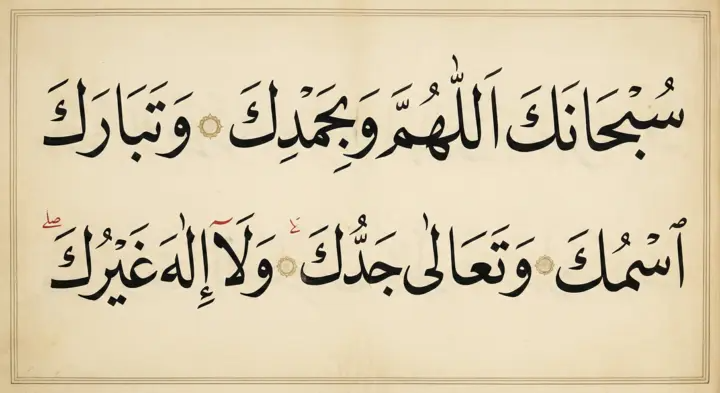 سُبْحَانَكَ اَللّٰهُمَّ وَبِحَمْدِكَ ۞ وَتَبَارَكَ
ٱسْمُكَ ۞ وَتَعَالٰى جَدُّكَ ۞ وَلَآ إِلٰهَ غَيْرُكَ ۖ